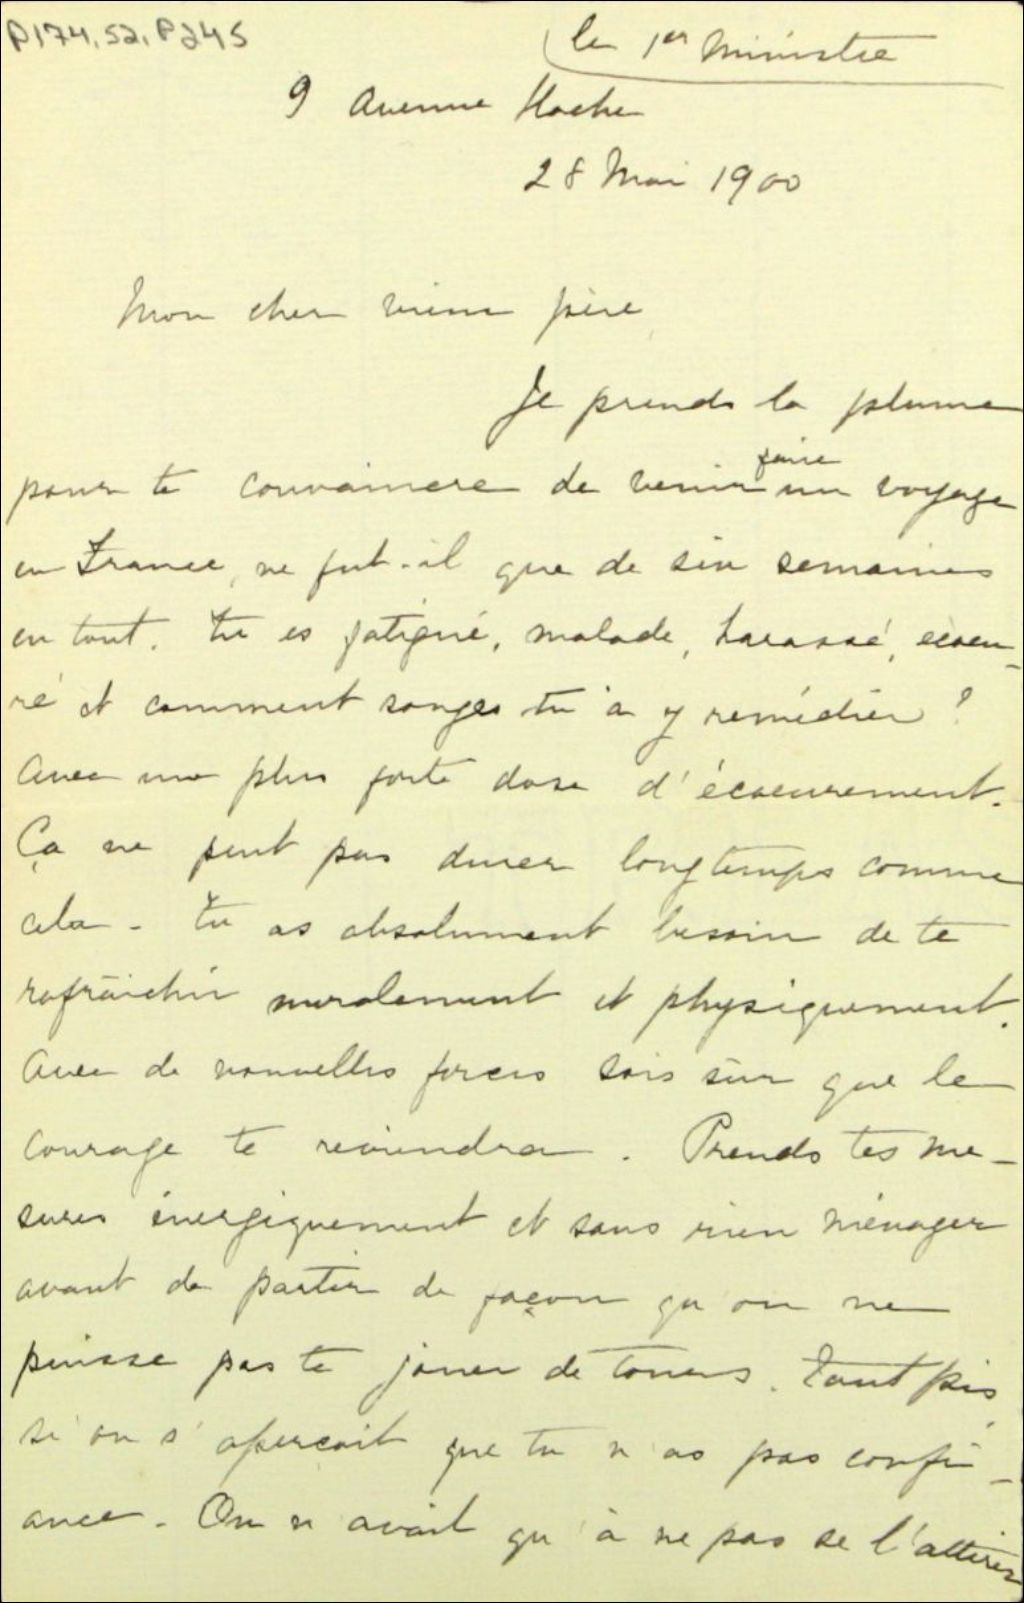 P174,S2,P245
le 1er Ministre
9 Avenue Hoche
28 Mai 1900
Mon cher vieux père
Je prends la plume
pour te convaincre de venir faire un voyage
en France, ne fut-il que de six semaines
en tout. Tu es fatigué, malade, harassé, écoeu-
ré et comment songes tu à y remédier ?
Avec une plus forte dose d'écoeurement.
Ça ne peut pas durer longtemps comme
cela - Tu as absolument besoin de te
rafraichir moralement et physiquement.
Avec de nouvelles forces sois sûr que le
courage te reviendra. Prends tes me-
sures énergiquement et sans rien ménager
avant de partir de façon qu'on ne
puisse pas te jouer de tours. Tant pis
si on s'aperçoit que tu n'as pas confi-
ance. On n'avait qu'à ne pas se l'attirer